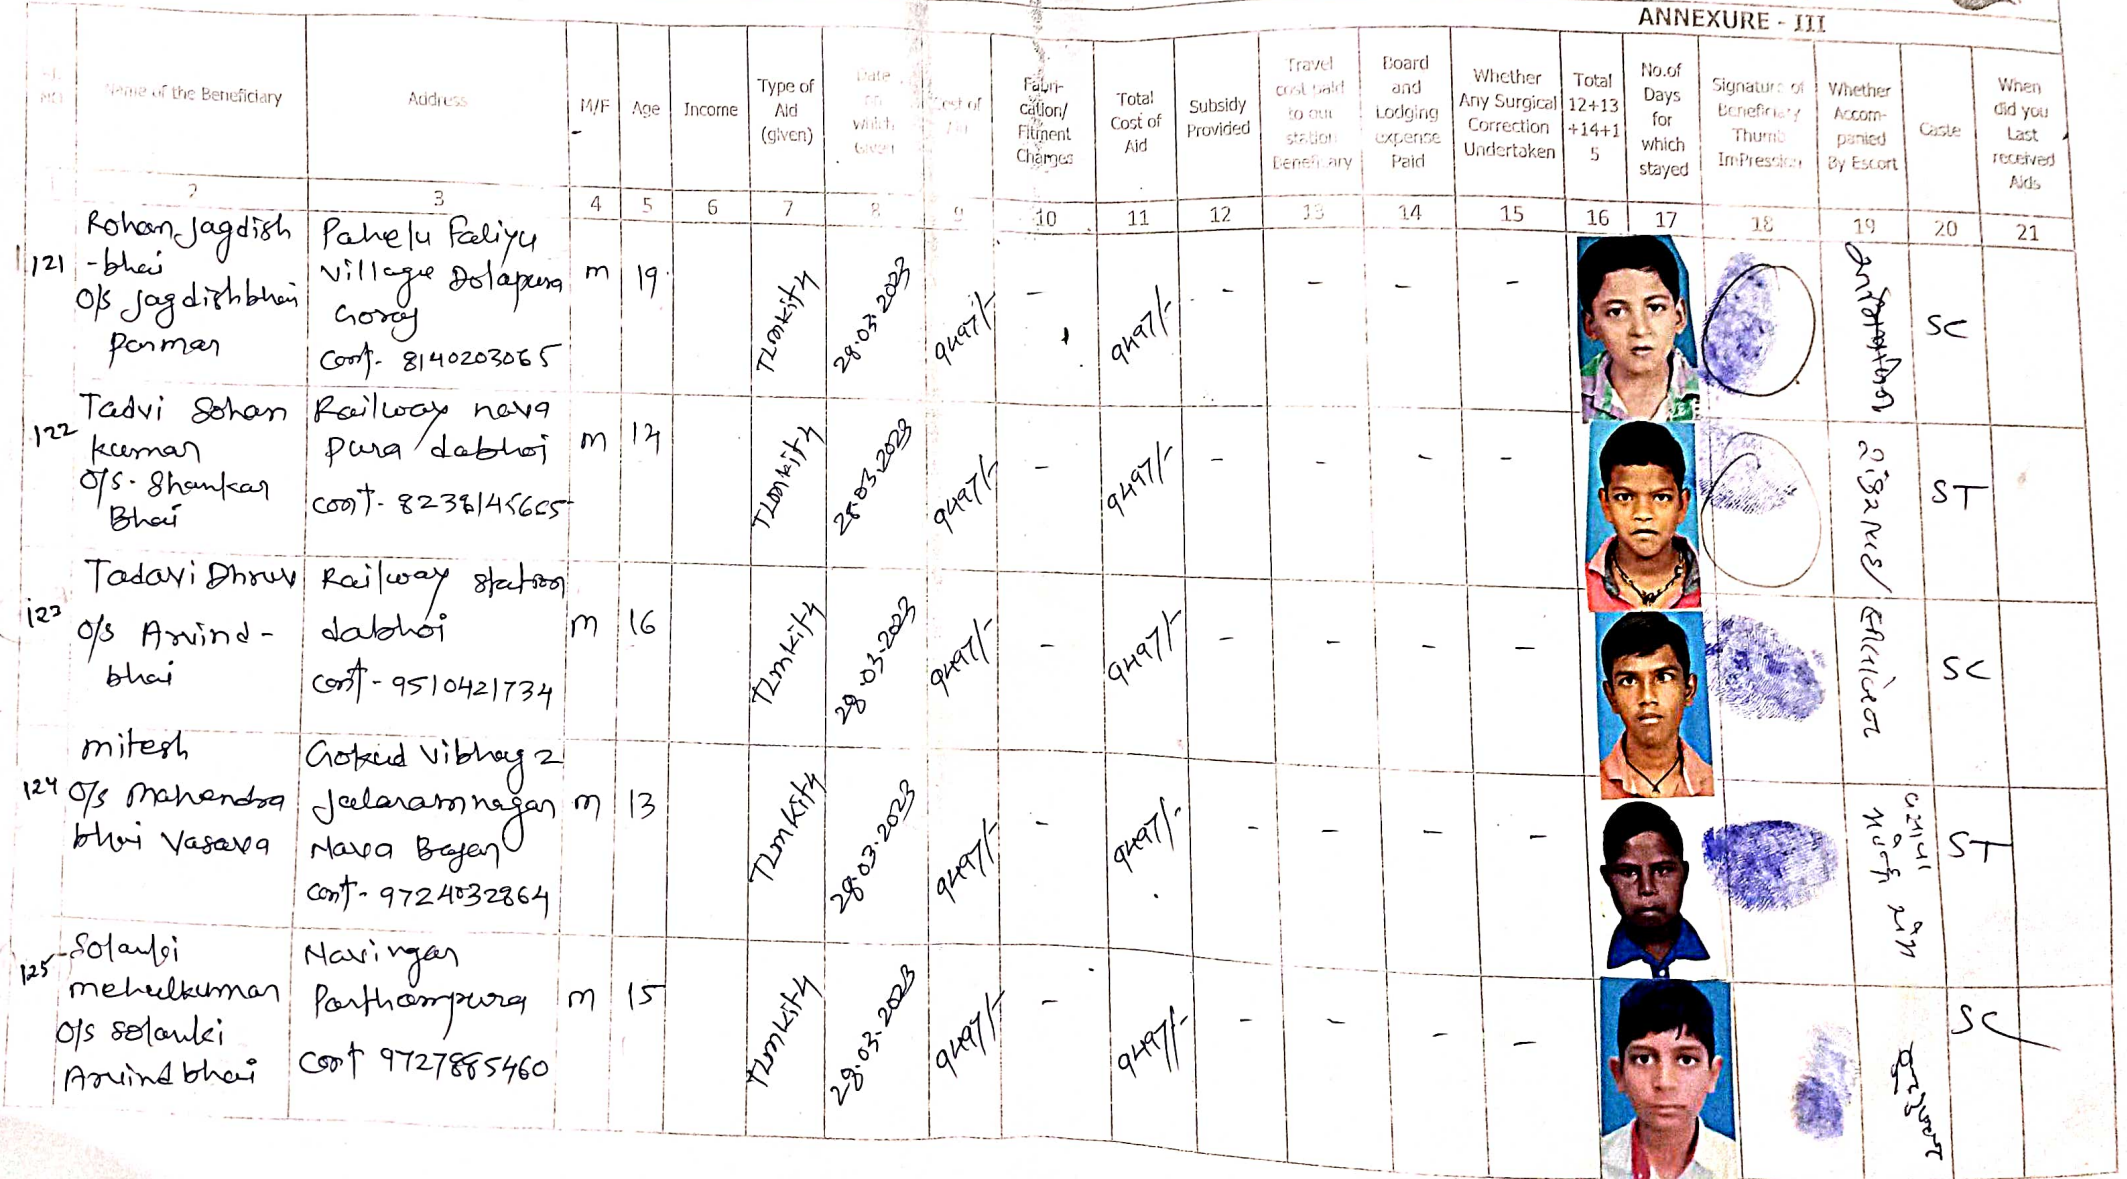 ANNEXURE - III
Name of the Beneficiary
Address
M/F
Age
Income
Type of
Aid
(given)
Date
on
which
Given
Cost of
Aid
Fabri-
cation/
Fitment
Charges
Total
Cost of
Aid
Subsidy
Provided
Travel
cost paid
to out
station
Beneficiary
Board
and
Lodging
expense
Paid
Whether
Any Surgical
Correction
Undertaken
Total
12+13
+14+1
5
No.of
Days
for
which
stayed
Signature of
Beneficiary
Thumb
ImPression
Whether
Accom-
panied
By Escort
Caste
When
did you
Last
received
Aids
1 2 3 4 5 6 7 8 9 10 11 12 13 14 15 16 17 18 19 20 21
121
Rohan Jagdish
-bhai
O/s Jagdishbhai
Parmar
Pahelu Faliyu
Village Dolapura
Goraj
Cont- 8140203065
m
19
TLMkit4
28.03.2023
9497/-
-
9497/-
- - - -
SC
122
Tadvi Sohan
kumar
O/s. Shankar
Bhai
Railway nava
pura dabhoi
cont- 8238145665
m
14
TLMkit4
28.03.2023
9497/-
-
9497/-
- - - -
ST
123
Tadavi Dhruv
O/s Arvind-
bhai
Railway station
dabhoi
cont- 9510421734
m
16
TLMkit4
28.03.2023
9497/-
-
9497/-
- - - -
SC
124
mitesh
O/s Mahendra
bhai Vasava
Gokul Vibhag 2
Jalaramnagar
Nava Bajar
cont- 9724032864
m
13
TLMkit4
28.03.2023
9497/-
-
9497/-
- - - -
ST
125
Solanki
mehulkumar
O/s Solanki
Arvindbhai
Navingar
Parthampura
cont 9727885460
m
15
TLMkit4
28.03.2023
9497/-
-
9497/-
- - - -
SC